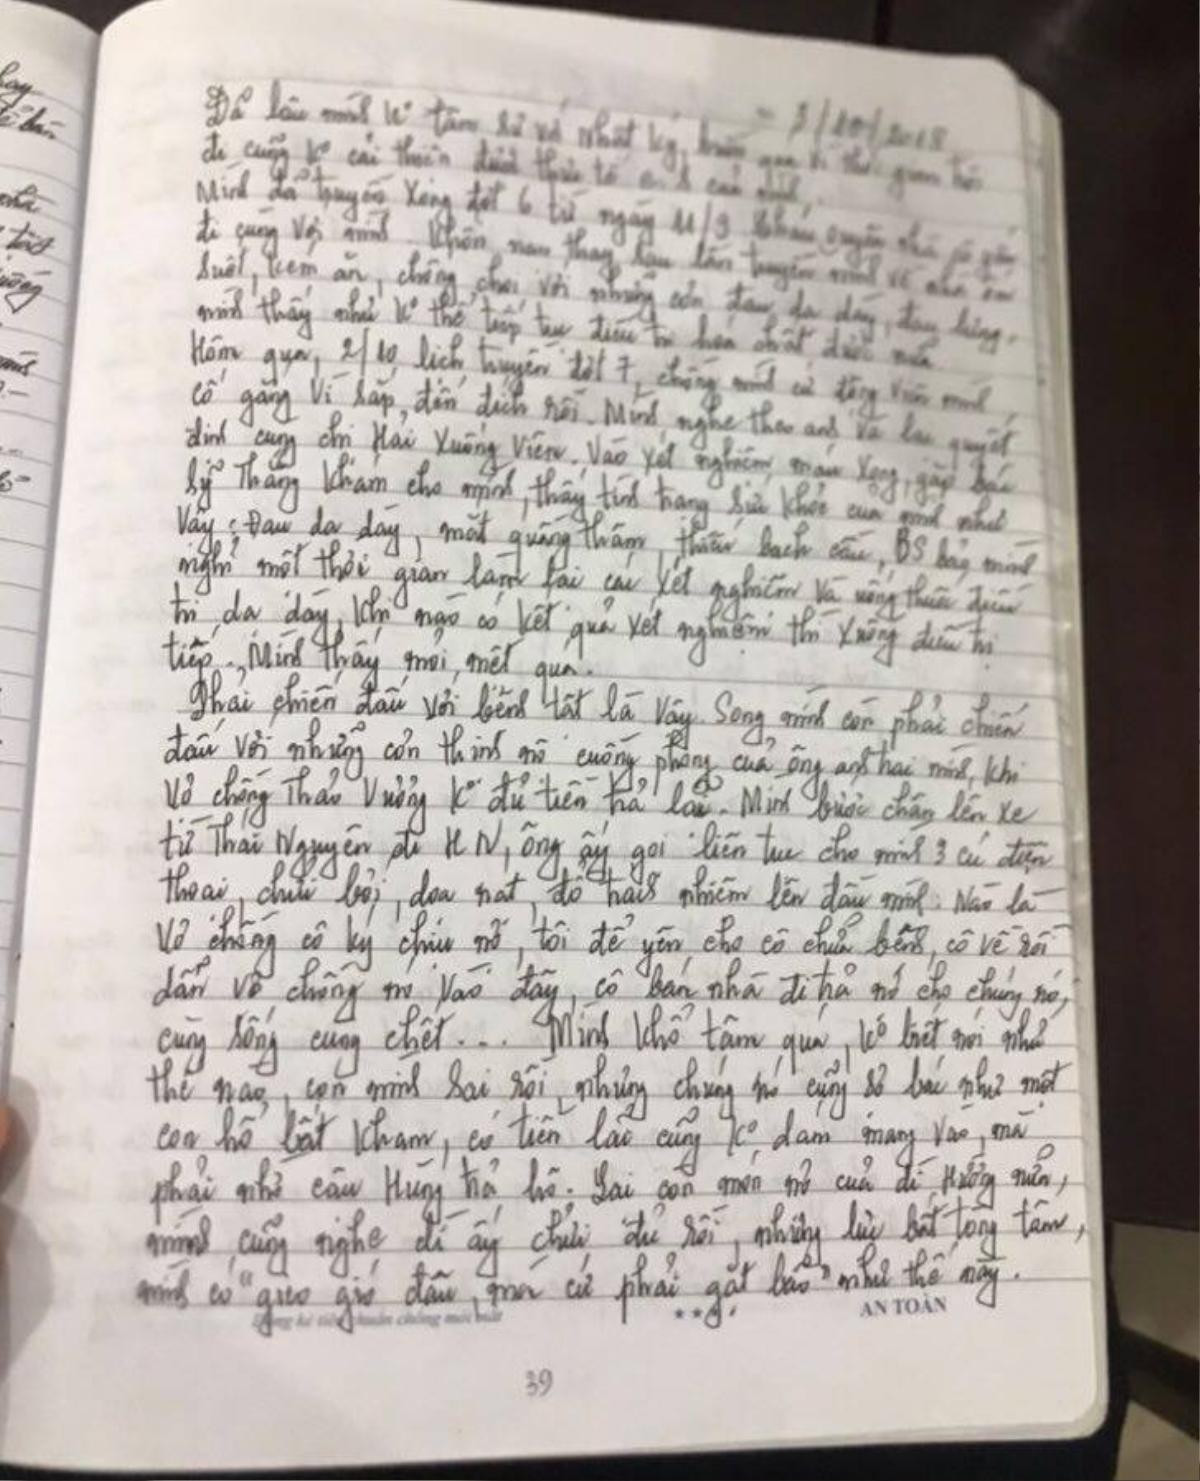 hay
3/10/2018
Đã lâu mình ko tâm sự với nhật ký, buồn quá vì thời gian trôi
đi cũng ko cải thiện được thực tế
Mình đã truyền xong đợt 6 từ ngày 11/9
đi cùng với mình. Khốn nạn thay, sau lần truyền mình về nhà ốm
suốt, kém ăn, chống chọi với những cơn đau dạ dày, đau lưng,
mình thấy như ko thể tiếp tục điều trị hóa chất được nữa
Hôm qua, 2/10 lịch truyền đợt 7, chồng mình cứ động viên mình
cố gắng vì sắp đến đích rồi. Mình nghe theo anh và lại quyết
định cùng chị Hải xuống viện. Vào xét nghiệm máu xong, gặp bác
sỹ Thắng khám cho mình, thấy tình trạng sức khỏe của mình như
vậy: Đau dạ dày, mắt quầng thâm, thiếu bạch cầu, BS bảo mình
nghỉ một thời gian làm lại các xét nghiệm và uống thuốc điều
trị dạ dày, khi nào có kết quả xét nghiệm thì xuống điều trị
tiếp. Mình thấy mỏi, mệt quá.
Phải chiến đấu với bệnh tật là vậy. Song mình còn phải chiến
đấu với những cơn thịnh nộ cuồng phong của ông anh hai mình, khi
vợ chồng Thảo Vương ko đủ tiền trả lãi. Mình bước chân lên xe
từ Thái Nguyên đi HN, ông ấy gọi liên tục cho mình 3 cú điện
thoại, chửi bới, dọa nạt, đổ trách nhiệm lên đầu mình: Nào là
vợ chồng cô ký chịu nợ, tôi để yên cho cô chữa bệnh, cô về rồi
dẫn vợ chồng nó vào đây, cô bán nhà đi trả nợ cho chúng nó,
cùng sống cùng chết... Mình khổ tâm quá, ko biết nói như
thế nào, con mình sai rồi, nhưng chúng nó cũng sợ bác như một
con hổ bất kham, có tiền lãi cũng ko dám mang vào, mà
phải nhờ cậu Hùng trả hộ. Lại còn món nợ của dì Hường nữa,
mình cũng nghe dì ấy chửi đủ rồi, những lúc bất tòng tâm,
mình có "gieo gió đâu, mà cứ phải gặt bão" như thế này.
AN TOÀN
39